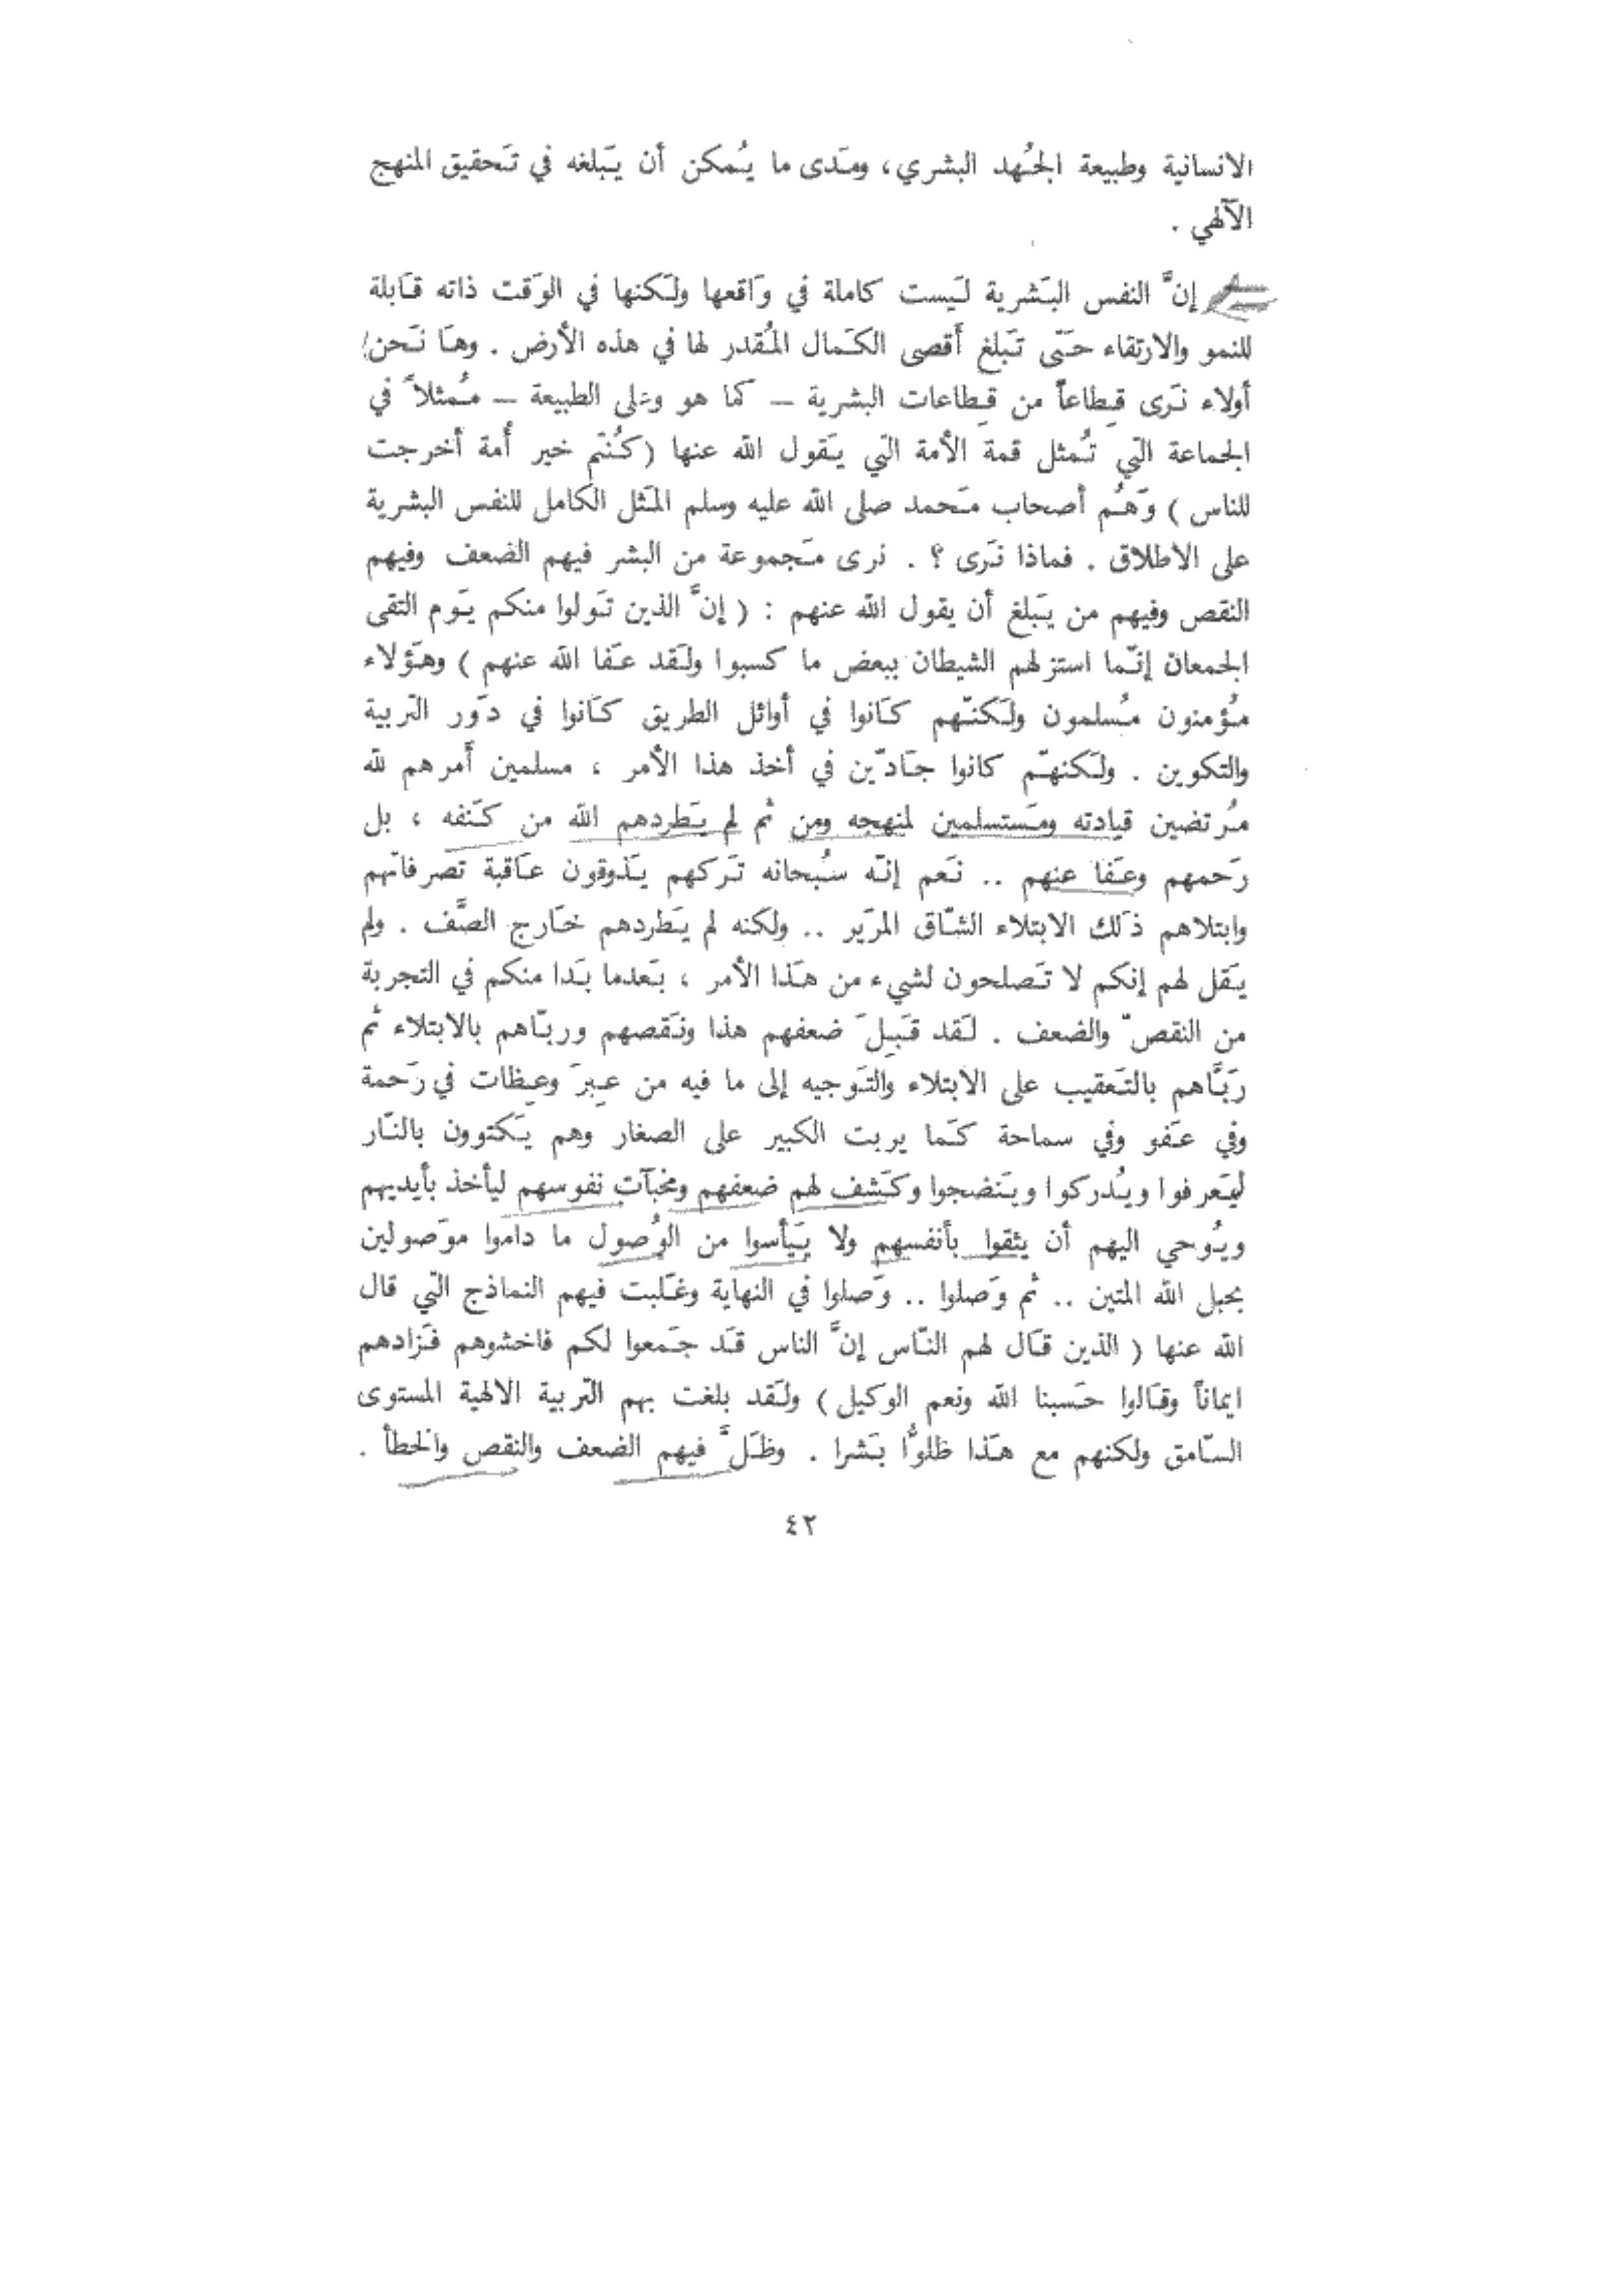 الانسانية وطبيعة الجُهد البشري، ومَدى ما يُمكن أن يَبلغه في تَحقيق المنهج
الآلهي .
إنَّ النفس البَشرية لَيست كاملة في وَاقعها ولَكنها في الوَقت ذاته قَابلة
للنمو والارتقاء حَتّى تَبلغ أَقصى الكَمال المُقدر لها في هذه الأرض . وهَا نَحن
أولاء نَرى قِطاعاً من قِطاعات البشرية – كما هو وعلى الطبيعة – مُمثلاً في
الجماعة التي تُمثل قمة الأمة التي يَقول الله عنها (كُنتم خير أُمة أخرجت
للناس ) وَهُم أصحاب مَحمد صلى الله عليه وسلم المَثل الكامل للنفس البشرية
على الاطلاق . فماذا نَرى ؟ . نرى مَجموعة من البشر فيهم الضعف وفيهم
النقص وفيهم من يَبلغ أن يقول الله عنهم : ( إنَّ الذين تَولوا منكم يَوم التقى
الجمعان إنّما استزلهم الشيطان ببعض ما كسبوا ولَقد عَفا الله عنهم ) وهَؤلاء
مُؤمنون مُسلمون ولَكنّهم كَانوا في أوائل الطريق كَانوا في دَور التربية
والتكوين . ولَكنهّم كانوا جَادّين في أخذ هذا الأمر ، مسلمين أَمرهم لله
مُرتضين قيادته ومَستسلمين لمنهجه ومن ثم لم يَطردهم الله من كَنفه ، بل
رَحمهم وعَفا عنهم .. نَعم إنّه سُبحانه تَركهم يَذوقون عَاقبة تَصرفاتهم
وابتلاهم ذَلك الابتلاء الشّاق المرَير .. ولكنه لم يَطردهم خَارج الصَّف . ولم
يَقل لهم إنكم لا تَصلحون لشيء من هَذا الأمر ، بَعدما بَدا منكم في التجربة
من النقصّ والضعف . لَقد قَبِلَ ضعفهم هذا ونَقصهم وربّاهم بالابتلاء ثم
رَبَّاهم بالتَعقيب على الابتلاء والتَوجيه إلى ما فيه من عِبرَ وعِظات في رَحمة
وفي عَفو وفي سماحة كَما يربت الكبير على الصغار وهم يَكتوون بالنّار
ليَعرفوا ويُدركوا ويَنضجوا وكَشف لهم ضعفهم ومخبآت نفوسهم ليأخذ بأيديهم
ويُوحي اليهم أن يثقوا بأنفسهم ولا يَيأسوا من الوُصول ما داموا موَصولين
بحبل الله المتين .. ثم وَصلوا .. وَصلوا في النهاية وغَلبت فيهم النماذج التي قال
الله عنها ( الذين قَال لهم النّاس إنَّ الناس قَد جَمعوا لكم فاخشوهم فَزادهم
ايماناً وقَالوا حَسبنا الله ونعم الوكيل ) ولَقد بلغت بهم التربية الالهية المستوى
السّامق ولكنهم مع هَذا ظلوُّا بَشرا . وظَلَّ فيهم الضعف والنقص والخطأ .
٤٢